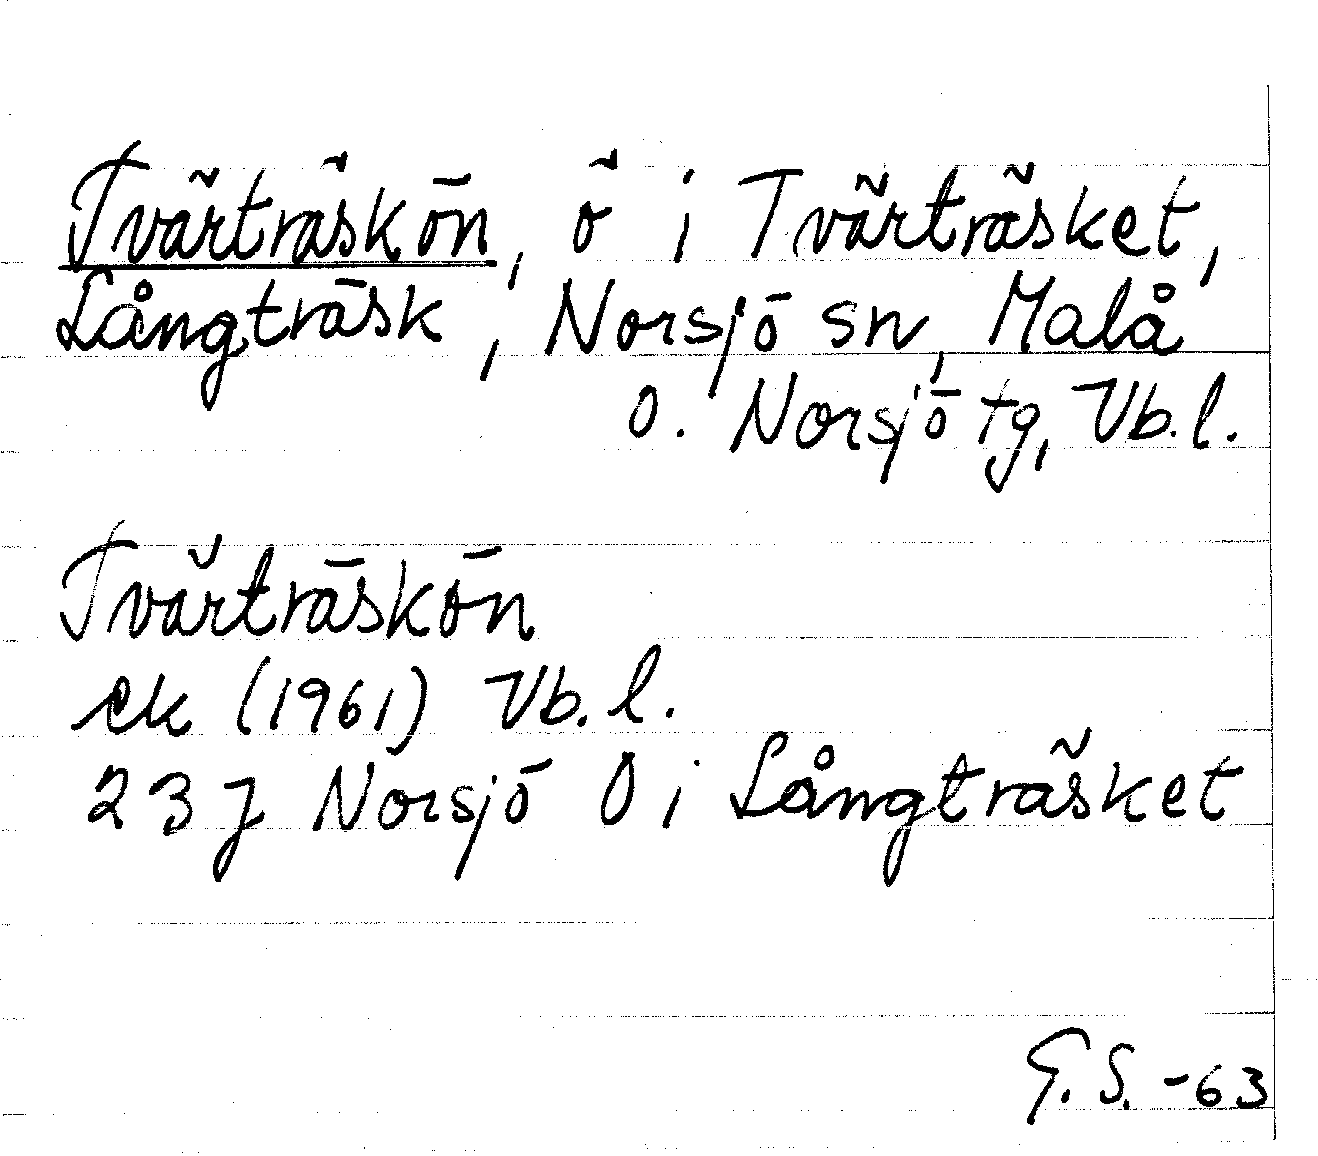 Tvärträskön, ö i Tvärträsket,
Långträsk, Norsjö sn, Malå
o. Norsjö tg, Vb. l.
Tvärträskön
ek (1961) Vb. l.
23 J Norsjö Ö i Långträsket
G. S. -63